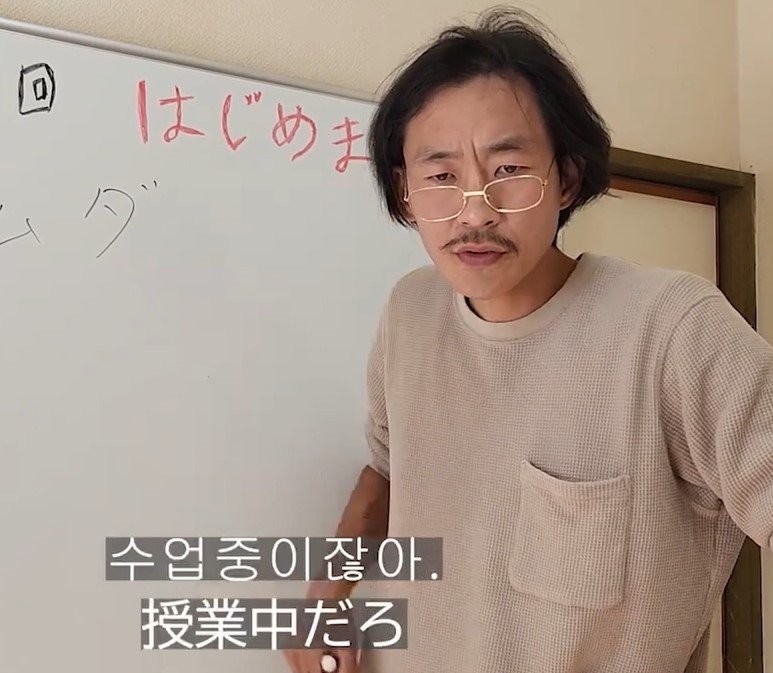 回 はじめま
ムダ
수업중이잖아.
授業中だろ